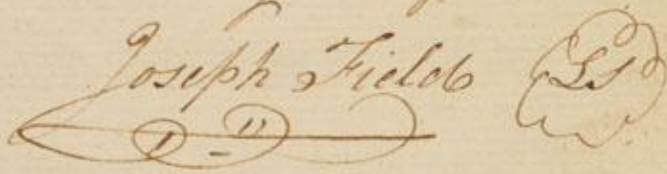 Joseph Fields LS